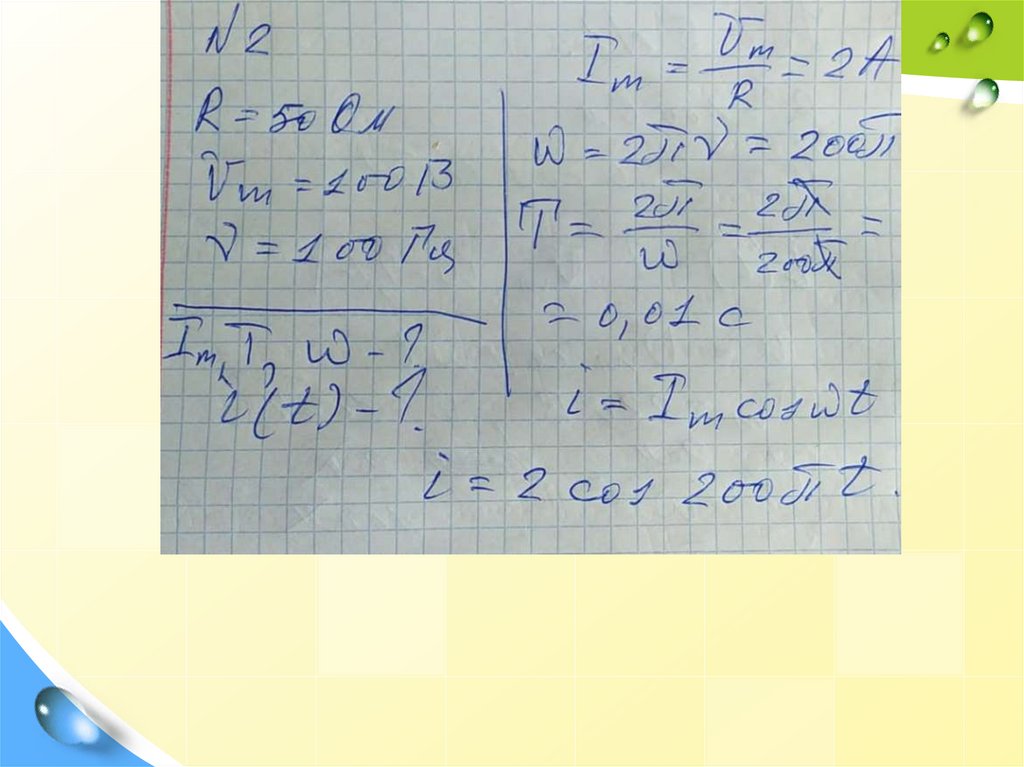 N 2
R = 50 Ом
Um = 100 В
ν = 100 Гц
Im, T, W - ?
i(t) - ?
Im = Um / R = 2 А
W = 2πν = 200π
T = 2π / W = 2π / 200π =
= 0,01 с
i = Im cos wt
i = 2 cos 200π t.